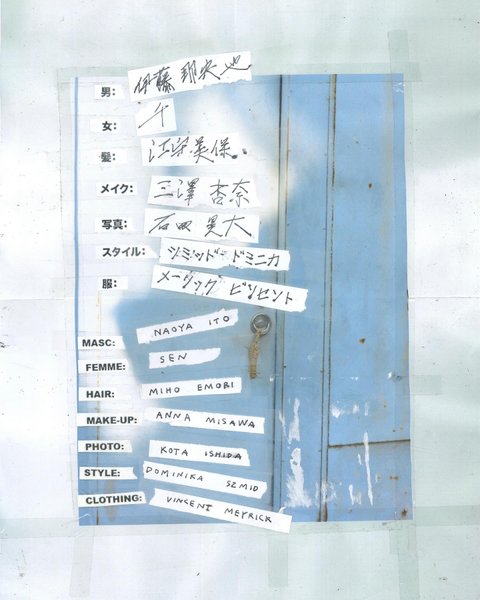 男: 伊藤 那央也
女: 千
髪: 江守美保.
メイク: 三澤 杏奈
写真: 石田 晃大
スタイル: シミッド・ドミニカ
服: メーリック ビンセント
MASC: NAOYA ITO
FEMME: SEN
HAIR: MIHO EMORI
MAKE-UP: ANNA MISAWA
PHOTO: KOTA ISHIDA
STYLE: DOMINIKA SZMID
CLOTHING: VINCENT MEYRICK